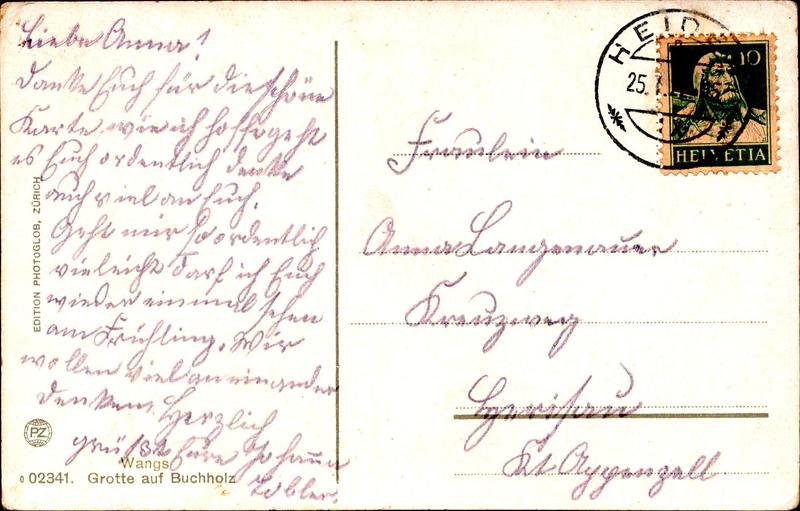 Liebe Anna!
Danke Euch für die schöne
Karte wie ich hoffe geht
es Euch ordentlich denke
auch viel an Euch.
Geht mir so ordentlich
vieleicht darf ich Euch
wieder einmal sehen
am Frühling. Wir
wollen viel an einander
denken. Herzlich
grüßt Eure Johanna
Tobler.
EDITION PHOTOGLOB, ZÜRICH
PZ
Wangs
02341. Grotte auf Buchholz
HEID
25.
10
HELVETIA
Fräulein
Anna Langenauer
Kreuzweg
Herisau
Kt Appenzell